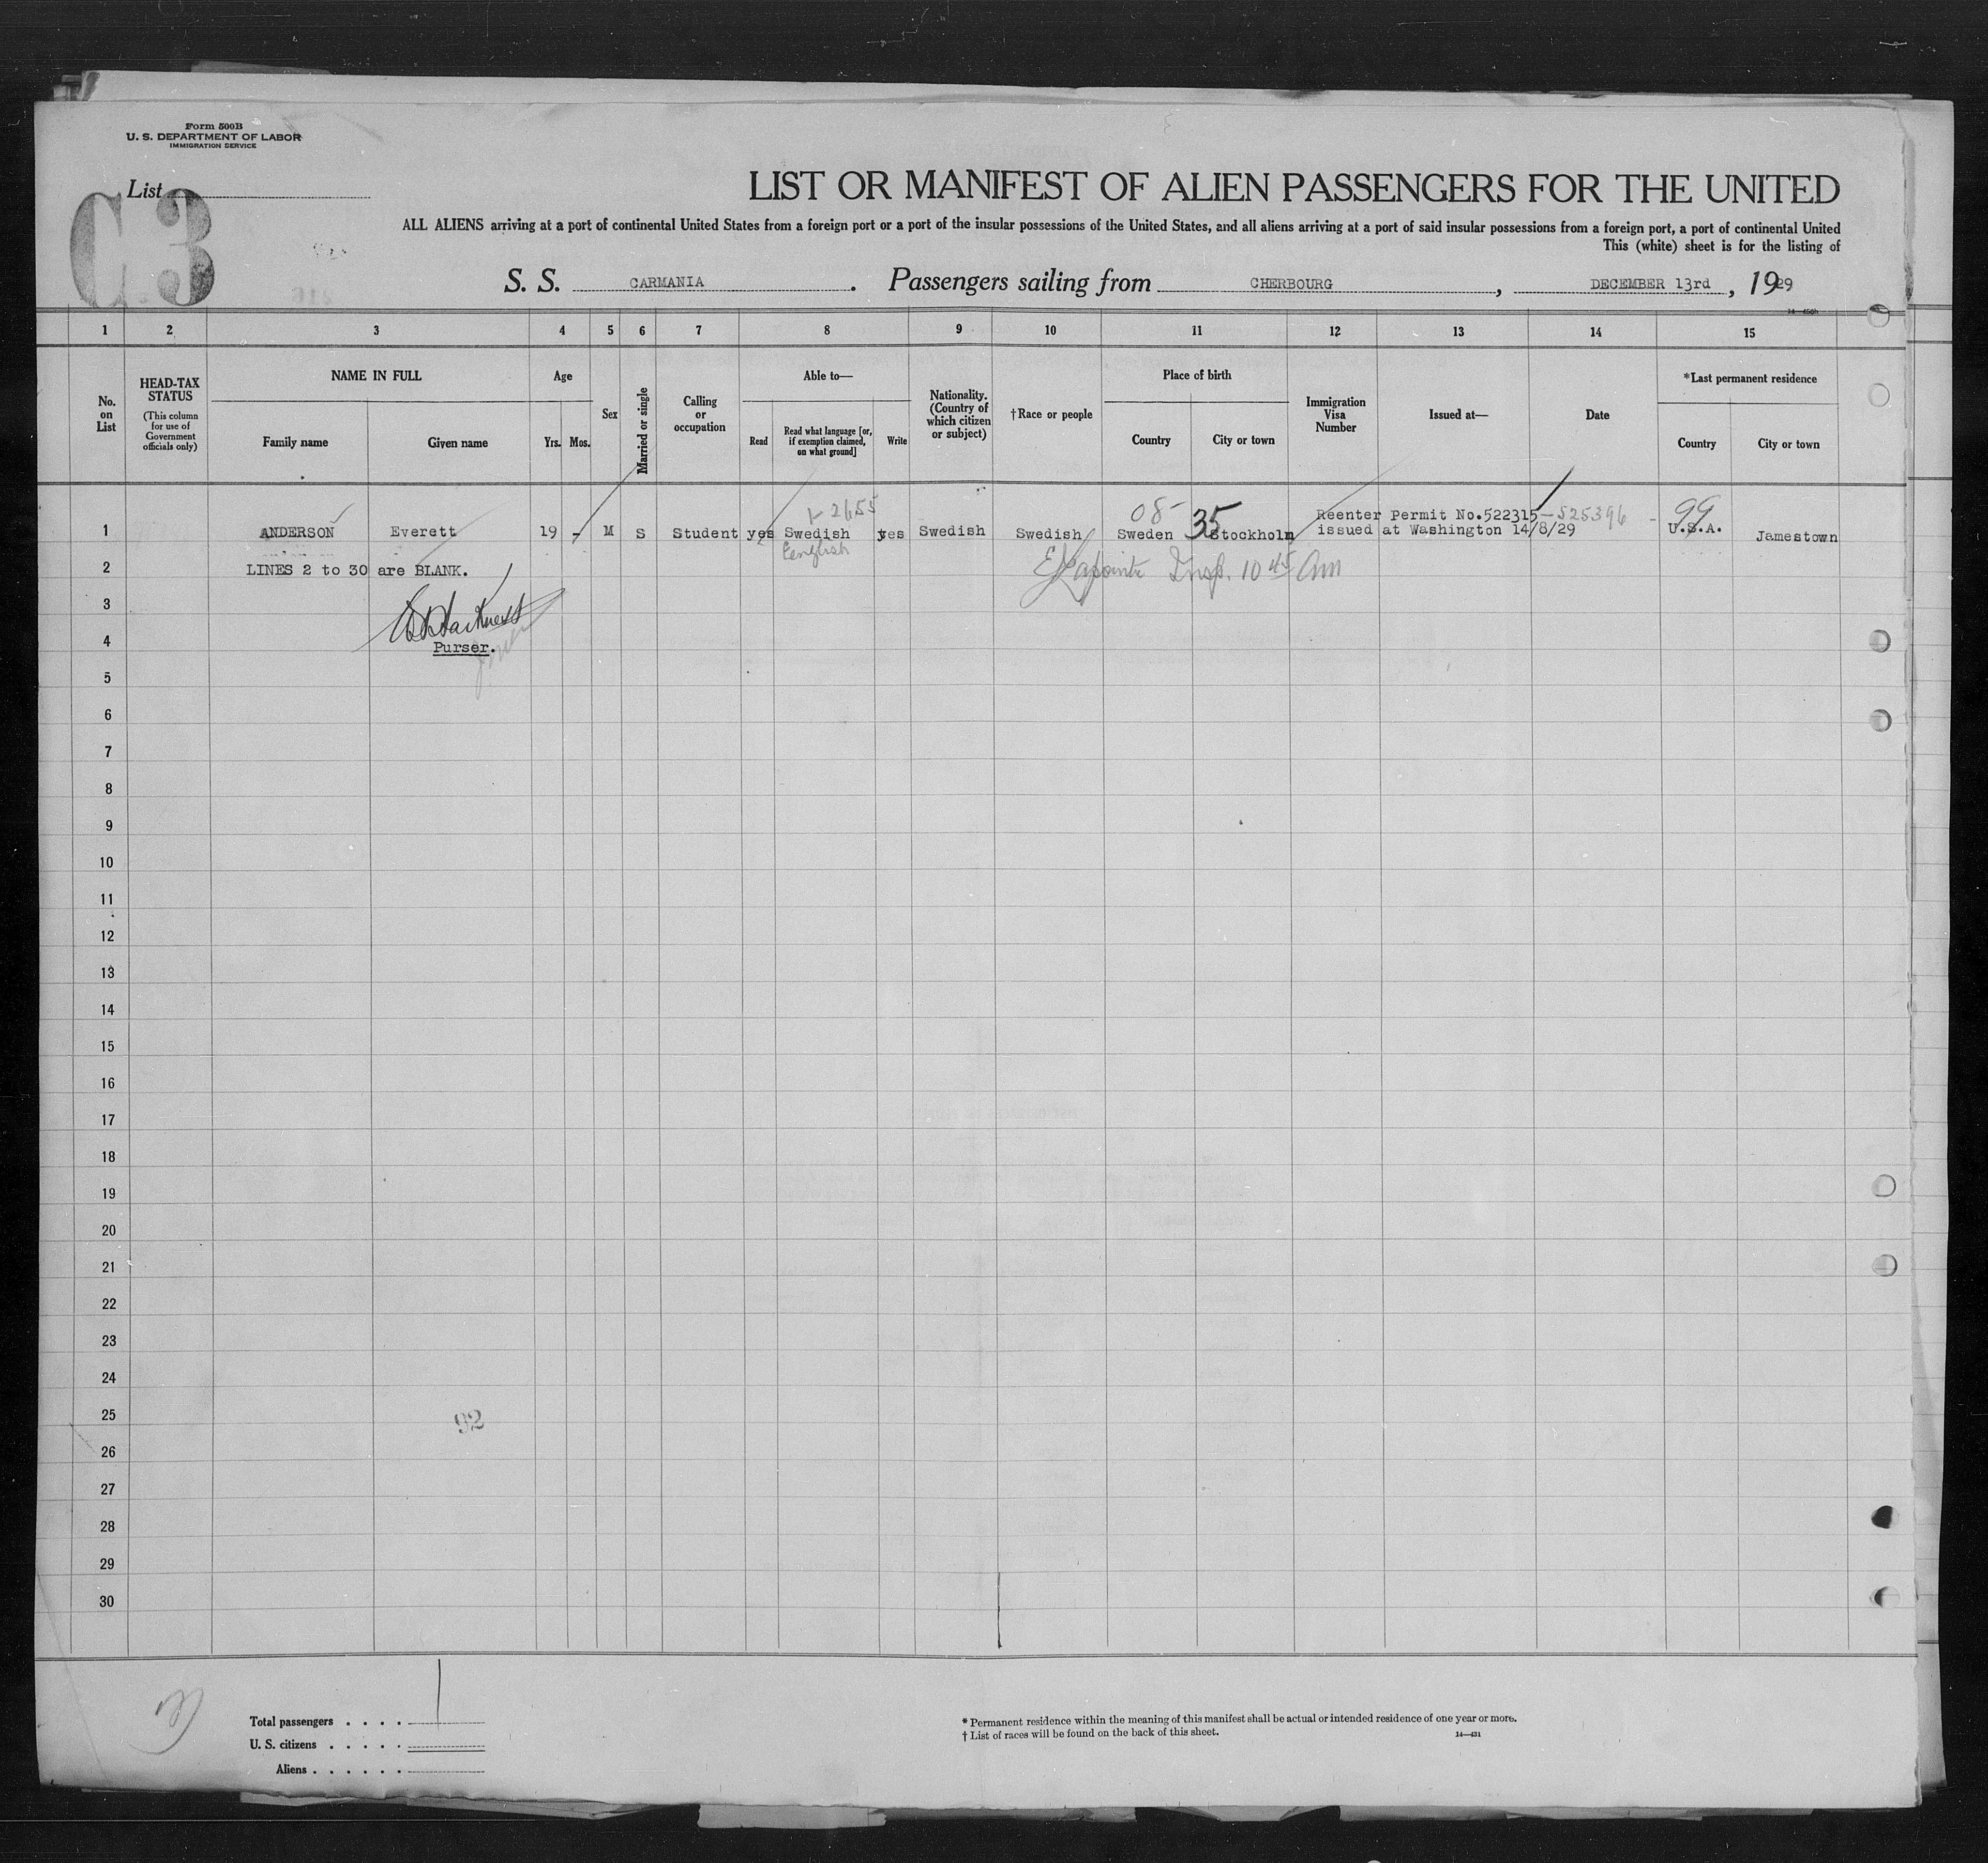 Form 500B
U. S. DEPARTMENT OF LABOR
IMMIGRATION SERVICE
List
C 3
LIST OR MANIFEST OF ALIEN PASSENGERS FOR THE UNITED
ALL ALIENS arriving at a port of continental United States from a foreign port or a port of the insular possessions of the United States, and all aliens arriving at a port of said insular possessions from a foreign port, a port of continental United
This (white) sheet is for the listing of
S. S. CARMANIA. Passengers sailing from CHERBOURG, DECEMBER 13rd, 1929
1 2 3 4 5 6 7 8 9 10 11 12 13 14 15
No. on List
HEAD-TAX STATUS (This column for use of Government officials only)
NAME IN FULL
Family name Given name
Age
Yrs. Mos.
Sex
Married or single
Calling or occupation
Able to—
Read Read what language [or, if exemption claimed, on what ground] Write
Nationality. (Country of which citizen or subject)
†Race or people
Place of birth
Country City or town
Immigration Visa Number
Issued at—
Date
*Last permanent residence
Country City or town
1-2655 08- 35 99
1 ANDERSON Everett 19 - M S Student yes Swedish yes Swedish Swedish Sweden Stockholm Reenter Permit No.522315-525396 U.S.A. Jamestown
issued at Washington 14/8/29
English
2 LINES 2 to 30 are BLANK. Lapointe Insp. 10 45 Am
3
4 Purser.
5
6
7
8
9
10
11
12
13
14
15
16
17
18
19
20
21
22
23
24
25
92
26
27
28
29
30
Total passengers . . . . 1
U. S. citizens . . . . .
Aliens . . . . . .
* Permanent residence within the meaning of this manifest shall be actual or intended residence of one year or more.
† List of races will be found on the back of this sheet. 14—431